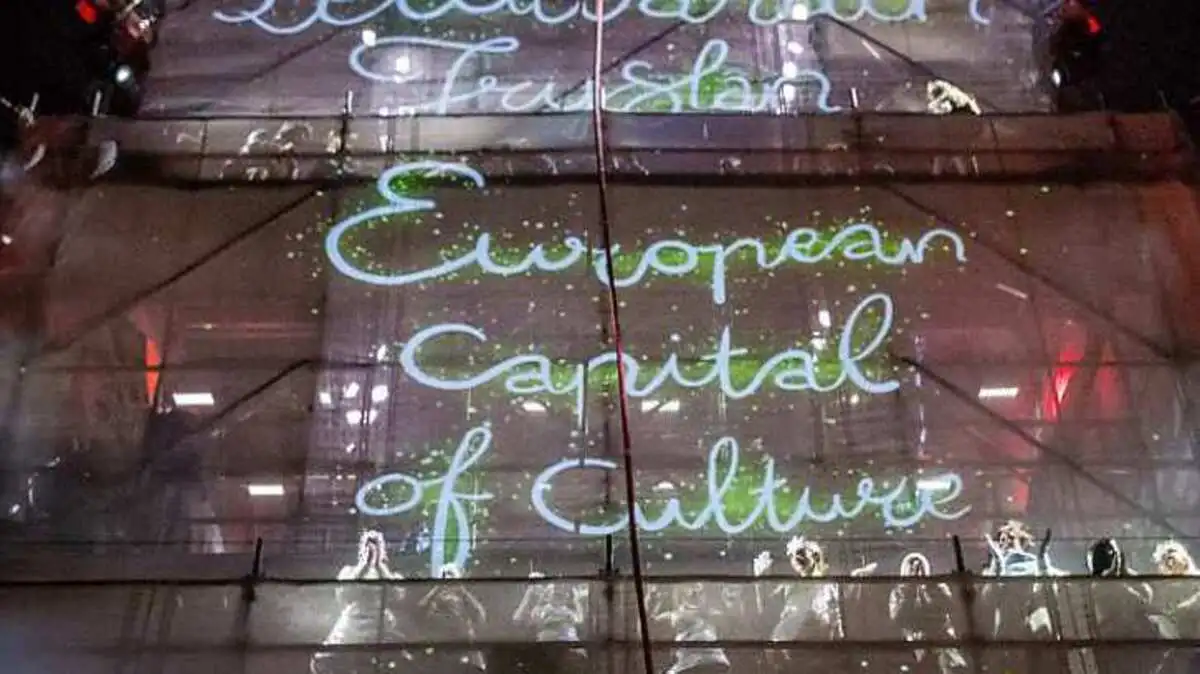 Fryslan
European
Capital
of Culture